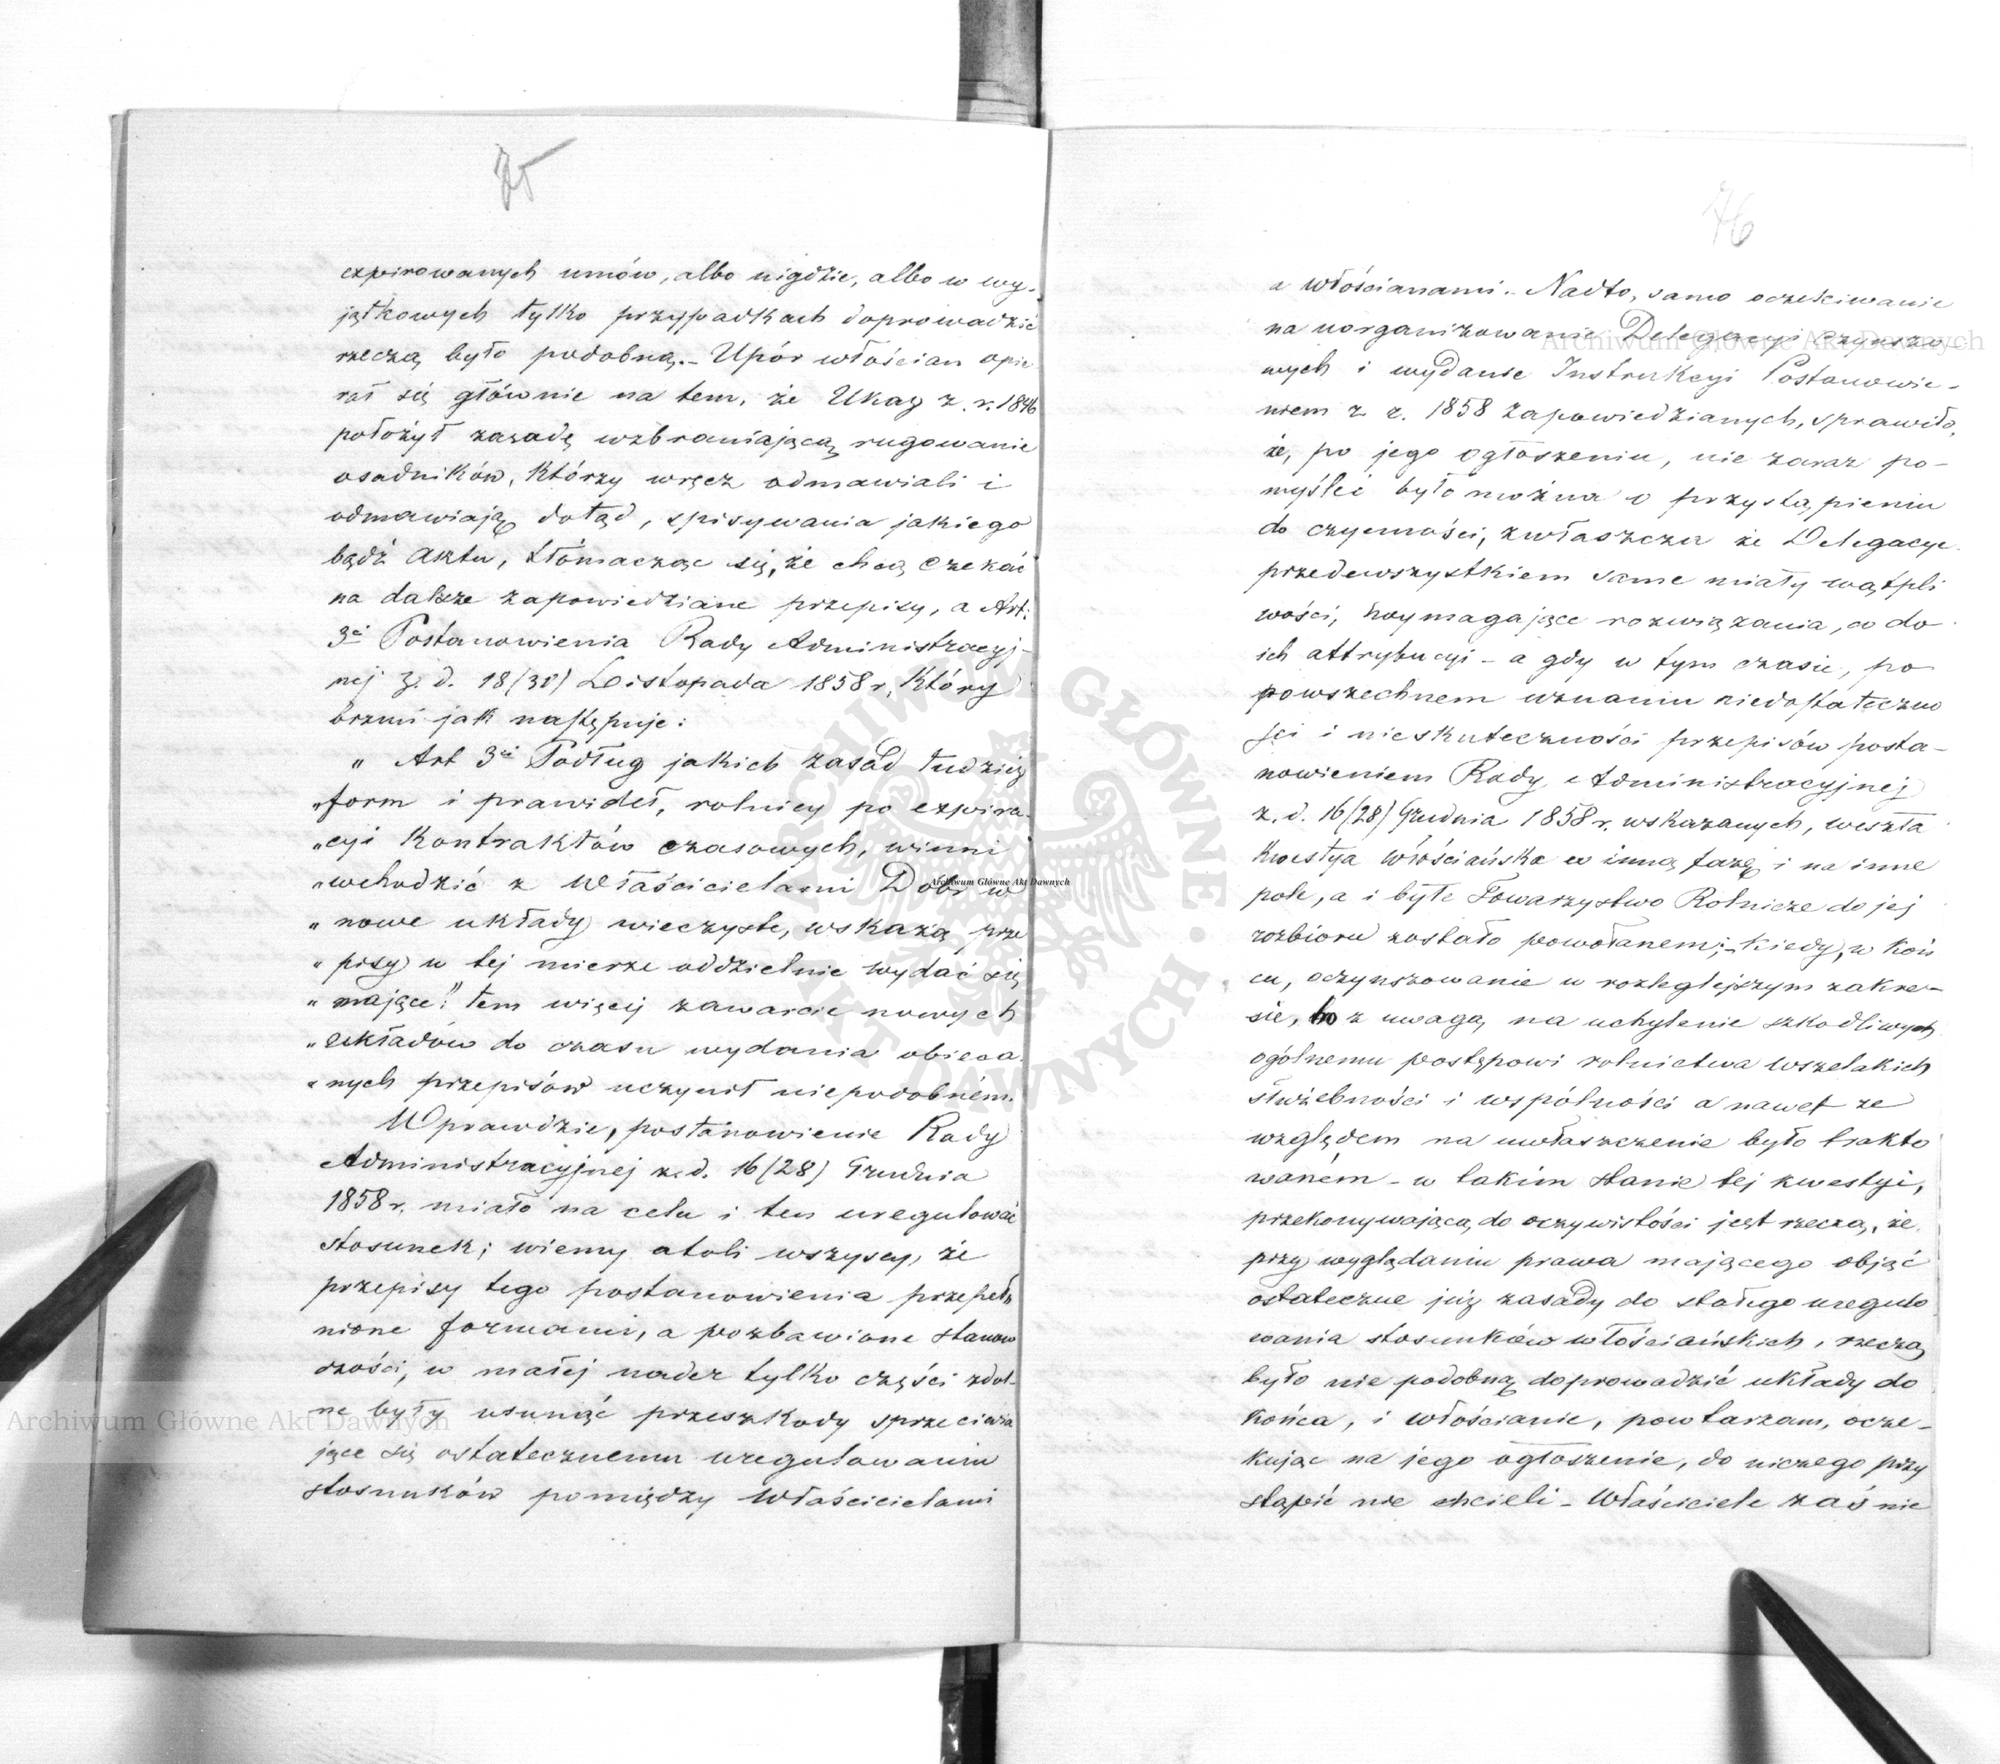 75
expirowanych umów, albo nigdzie, albo w wy-
jątkowych tylko przypadkach doprowadzić
rzeczą było podobną. - Upór włościan opie
rał się głównie na tem, że Ukaz z. r. 1846
położył zasadę wzbraniającą rugowanie
osadników, którzy wręcz odmawiali i
odmawiają dotąd, spisywania jakiego
bądź aktu, tłómacząc się, że chcą czekać
na dalsze zapowiedziane przepisy, a Art:
3ci Postanowienia Rady Administracyj-
nej z. d. 18/30) Listopada 1858 r, Który
brzmi jak następuje:
„ Art 3ci Podług jakich zasad tudzież
„form i prawideł, rolnicy po expira-
„cyi Kontraktów czasowych, winni
„wchodzić z Właścicielami Dóbr w
„ nowe układy wieczyste, wskażą prze
„ pisy w tej mierze oddzielnie wydać się
„ mające." tem więcej zawarcie nowych
„ układów do czasu wydania obieca-
„nych przepisów uczynił niepodobném.
Wprawdzie, postanowienie Rady
Administracyjnej z. d. 16/28) Grudnia
1858 r. miało na celu i ten uregulować
stosunek; wiemy atoli wszyscy, że
przepisy tego postanowienia przepeł„
nione formami, a pozbawione stanow
czości, w małej nader tylko części zdol-
ne były usunąć przeszkody sprzeciwia
jące się ostatecznemu uregulowaniu
stosunków pomiędzy Właścicielami
76
a włościanami. - Nadto, samo oczekiwanie
na uorganizowanie Delegacyi Czynszo-
wych i wydanie Instrukcyi Postanowie-
niem z r. 1858 zapowiedzianych, sprawiło,
że, po jego ogłoszeniu, nie zaraz po-
myśleć było można o przystąpieniu
do czynności, zwłaszcza że Delegacye
przedewszystkiem same miały wątpli
wości, wymagające rozwiązania, co do
ich attrybucyi - a gdy w tym czasie, po
powszechnem uznaniu niedostateczno
ści i nieskuteczności przepisów posta-
nowieniem Rady Administracyjnej
z. d. 16/28) Grudnia 1858 r. wskazanych, weszła
Kwestya Włościańska w inną fazę i na inne
pole, a i byłe Towarzystwo Rolnicze do jej
rozbioru zostało powołanem; - kiedy, w koń
cu, oczynszowanie w rozleglejszym zakre-
sie, bo z uwagą na uchylenie szkodliwych
ogólnemu postępowi rolnictwa wszelakich
służebności i wspólności a nawet ze
względem na uwłaszczenie było trakto
waném - w takim stanie tej kwestyi,
przekonywającą do oczywistości jest rzeczą, że
przy wyglądaniu prawa mającego objąć
ostateczne już zasady do stałego uregulo
wania stosunków włościańskich, rzeczą
było nie podobną doprowadzić układy do
Końca, i włościanie, powtarzam, ocze-
kując na jego ogłoszenie, do niczego przy
stąpić nie chcieli - Właściciele zaś nie
Archiwum Główne Akt Dawnych
Archiwum Główne Akt Dawnych
Archiwum Główne Akt Dawnych
ARCHIWUM GŁÓWNE · AKT DAWNYCH ·